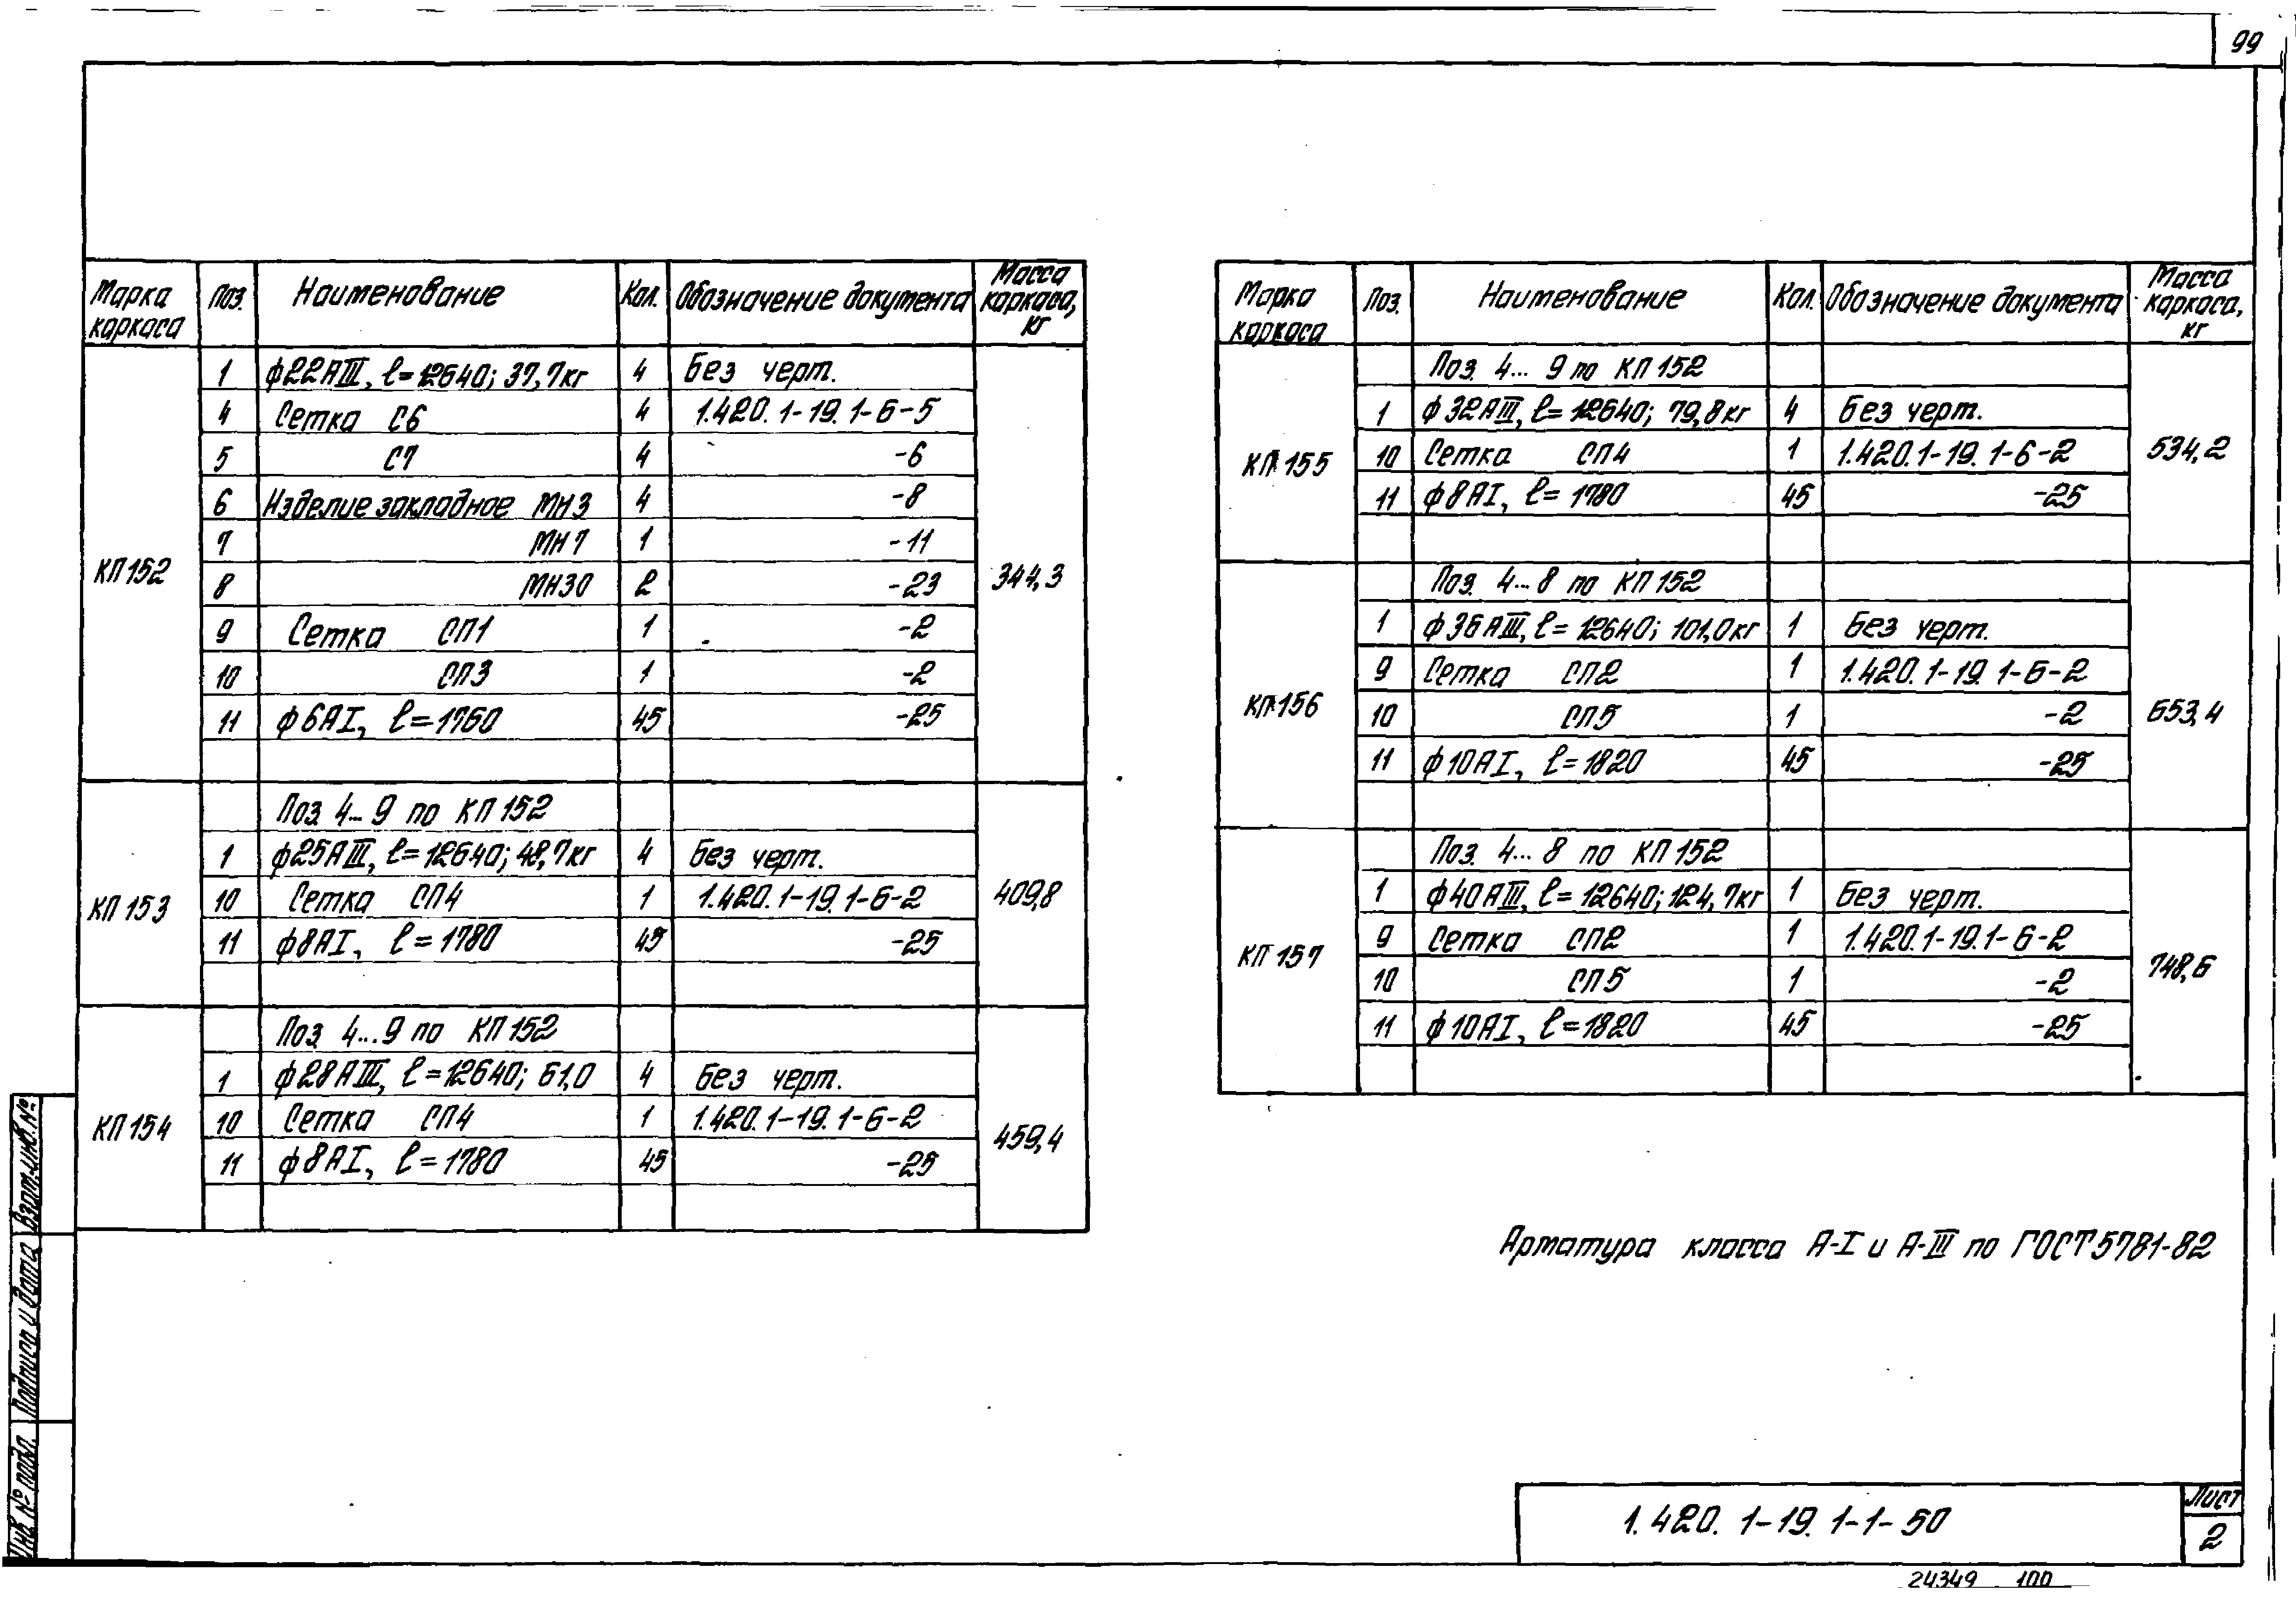 99
Марка каркаса | Поз. | Наименование | Кол. | Обозначение документа | Масса каркаса, кг
КП152 | 1 | ф22АIII, ℓ=12640; 37,7кг | 4 | Без черт. | 344,3
4 | Сетка С6 | 4 | 1.420.1-19.1-6-5
5 | С7 | 4 | -6
6 | Изделие закладное МН3 | 4 | -8
7 | МН7 | 1 | -11
8 | МН30 | 2 | -23
9 | Сетка СП1 | 1 | -2
10 | СП3 | 1 | -2
11 | ф6АI, ℓ=1760 | 45 | -25
КП153 | Поз. 4...9 по КП152 | 409,8
1 | ф25АIII, ℓ=12640; 48,7кг | 4 | Без черт.
10 | Сетка СП4 | 1 | 1.420.1-19.1-6-2
11 | ф8АI, ℓ=1780 | 45 | -25
КП154 | Поз. 4...9 по КП152 | 459,4
1 | ф28АIII, ℓ=12640; 61,0 | 4 | Без черт.
10 | Сетка СП4 | 1 | 1.420.1-19.1-6-2
11 | ф8АI, ℓ=1780 | 45 | -25
Марка каркаса | Поз. | Наименование | Кол. | Обозначение документа | Масса каркаса, кг
КП155 | Поз. 4...9 по КП152 | 534,2
1 | ф32АIII, ℓ=12640; 79,8кг | 4 | Без черт.
10 | Сетка СП4 | 1 | 1.420.1-19.1-6-2
11 | ф8АI, ℓ=1780 | 45 | -25
КП156 | Поз. 4...8 по КП152 | 653,4
1 | ф36АIII, ℓ=12640; 101,0кг | 1 | Без черт.
9 | Сетка СП2 | 1 | 1.420.1-19.1-6-2
10 | СП5 | 1 | -2
11 | ф10АI, ℓ=1820 | 45 | -25
КП157 | Поз. 4...8 по КП152 | 748,6
1 | ф40АIII, ℓ=12640; 124,7кг | 1 | Без черт.
9 | Сетка СП2 | 1 | 1.420.1-19.1-6-2
10 | СП5 | 1 | -2
11 | ф10АI, ℓ=1820 | 45 | -25
Арматура класса А-I и А-III по ГОСТ 5781-82
Инв. № подл. Подпись и дата Взам. инв. №
1.420.1-19.1-1-50
Лист
2
24349 100